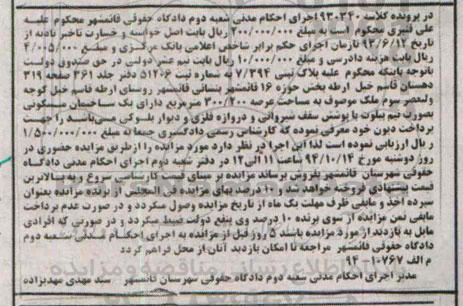 در پرونده کلاسه ۹۳۰۳۴۰ اجرای احکام مدنی شعبه دوم دادگاه حقوقی قائمشهر محکوم علیه
علی قنبری محکوم است به مبلغ ۲۰۰/۰۰۰/۰۰۰ ریال بابت اصل خواسته و خسارت تاخیر تادیه از
تاریخ ۹۳/۶/۱۲ تازمان اجرای حکم برابر شاخص اعلامی بانک مرکزی و مبلغ ۴/۰۰۵/۰۰۰
ریال بابت هزینه دادرسی و مبلغ ۱۰/۰۰۰/۰۰۰ ریال بابت نیم عشر دولتی در حق صندوق دولت
باتوجه باینکه محکوم علیه پلاک ثبتی ۷/۳۹۴ به شماره ثبت ۵۱۲۰۶ دفتر جلد ۳۶۱ صفحه ۳۱۹
دهستان قاسم خیل ارطه بخش حوزه ۱۶ قائمشهر بنشانی قائمشهر روستای ارطه قاسم خیل کوچه
ولیعصر سوم ملک موصوف به مساحت عرصه ۳۰۰/۲۰۰ مترمربع دارای یک ساختمان مسکونی
بصورت نیم پیلوت با پوشش سقف شیروانی و دروازه فلزی و دیوار بلوکی می باشد را جهت
پرداخت دیون خود معرفی نموده که کارشناس رسمی دادگستری جمعا به مبلغ ۱/۵۰۰/۰۰۰/۰۰۰
ر یال ارزیابی نموده است لذا این اجرا در نظر دارد مورد مزایده را ازطریق مزایده حضوری در
روز دوشنبه مورخ ۹۴/۱۰/۱۴ ساعت ۱۱ الی ۱۲ در دفتر شعبه دوم اجرای احکام مدنی دادگاه
حقوقی شهرستان قائمشهر بفروش برساند مزایده بر مبنای قیمت کارشناسی شروع و به بالاترین
قیمت پیشنهادی فروخته خواهد شد و ۱۰ درصد بهای مزایده فی المجلس از برنده مزایده بعنوان
سپرده اخذ و مابقی ظرف مهلت یک ماه از تاریخ مزایده وصول میگردد و در صورت عدم پرداخت
مابقی ثمن مزایده از سوی برنده ۱۰ درصد وی بنفع دولت ضبط میگردد و در صورتی که افرادی
مایل به بازدید از مورد مزایده باشند ۵ روز قبل از مزایده به اجرای احکام مدنی شعبه دوم
دادگاه حقوقی قائمشهر مراجعه تا امکان بازدید آنان از محل فراهم گردد
م الف ۱۰۷۶۷-۹۴
مدیر اجرای احکام مدنی شعبه دوم دادگاه حقوقی شهرستان قائمشهر سید مهدی مهدیزاده